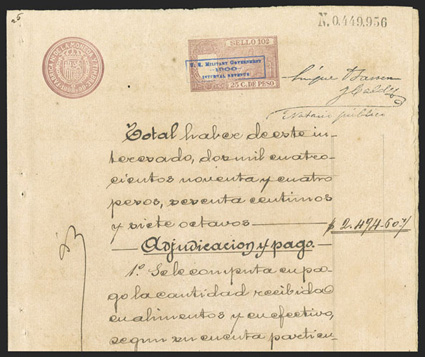 N. 0.449.956
SELLO 10º
U. S. MILITARY GOVERNMENT
1900
INTERNAL REVENUE
25 C. DE PESO
Notario público
Total haber de este in-
teresado, dos mil cuatro-
cientos noventa y cuatro
pesos, sesenta centimos
y siete octavos
$ 2.494-60 7/
Adjudicacion y pago.
1º Se le computa en pa-
go la cantidad recibida
en alimentos y en efectivo,
segun su cuenta particu-